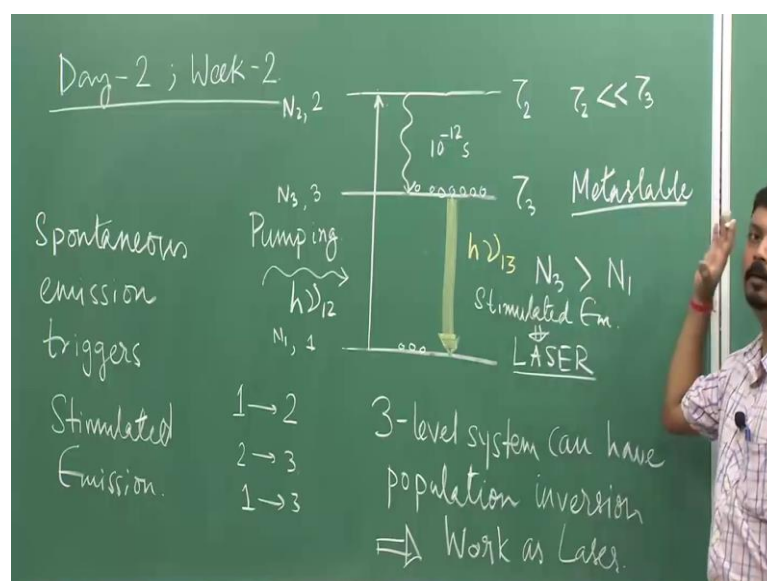 Day-2 ; Week-2
N₂, 2
τ₂ τ₂ << τ₃
10⁻¹² s
N₃, 3
τ₃ Metastable
Spontaneous
emission
triggers
Stimulated
Emission.
Pumping
hν₁₂
hν₁₃
N₃ > N₁
Stimulated Em.
⇓
LASER
N₁, 1
1→2
2→3
1→3
3-level system can have
population inversion
⇒ Work as Laser.